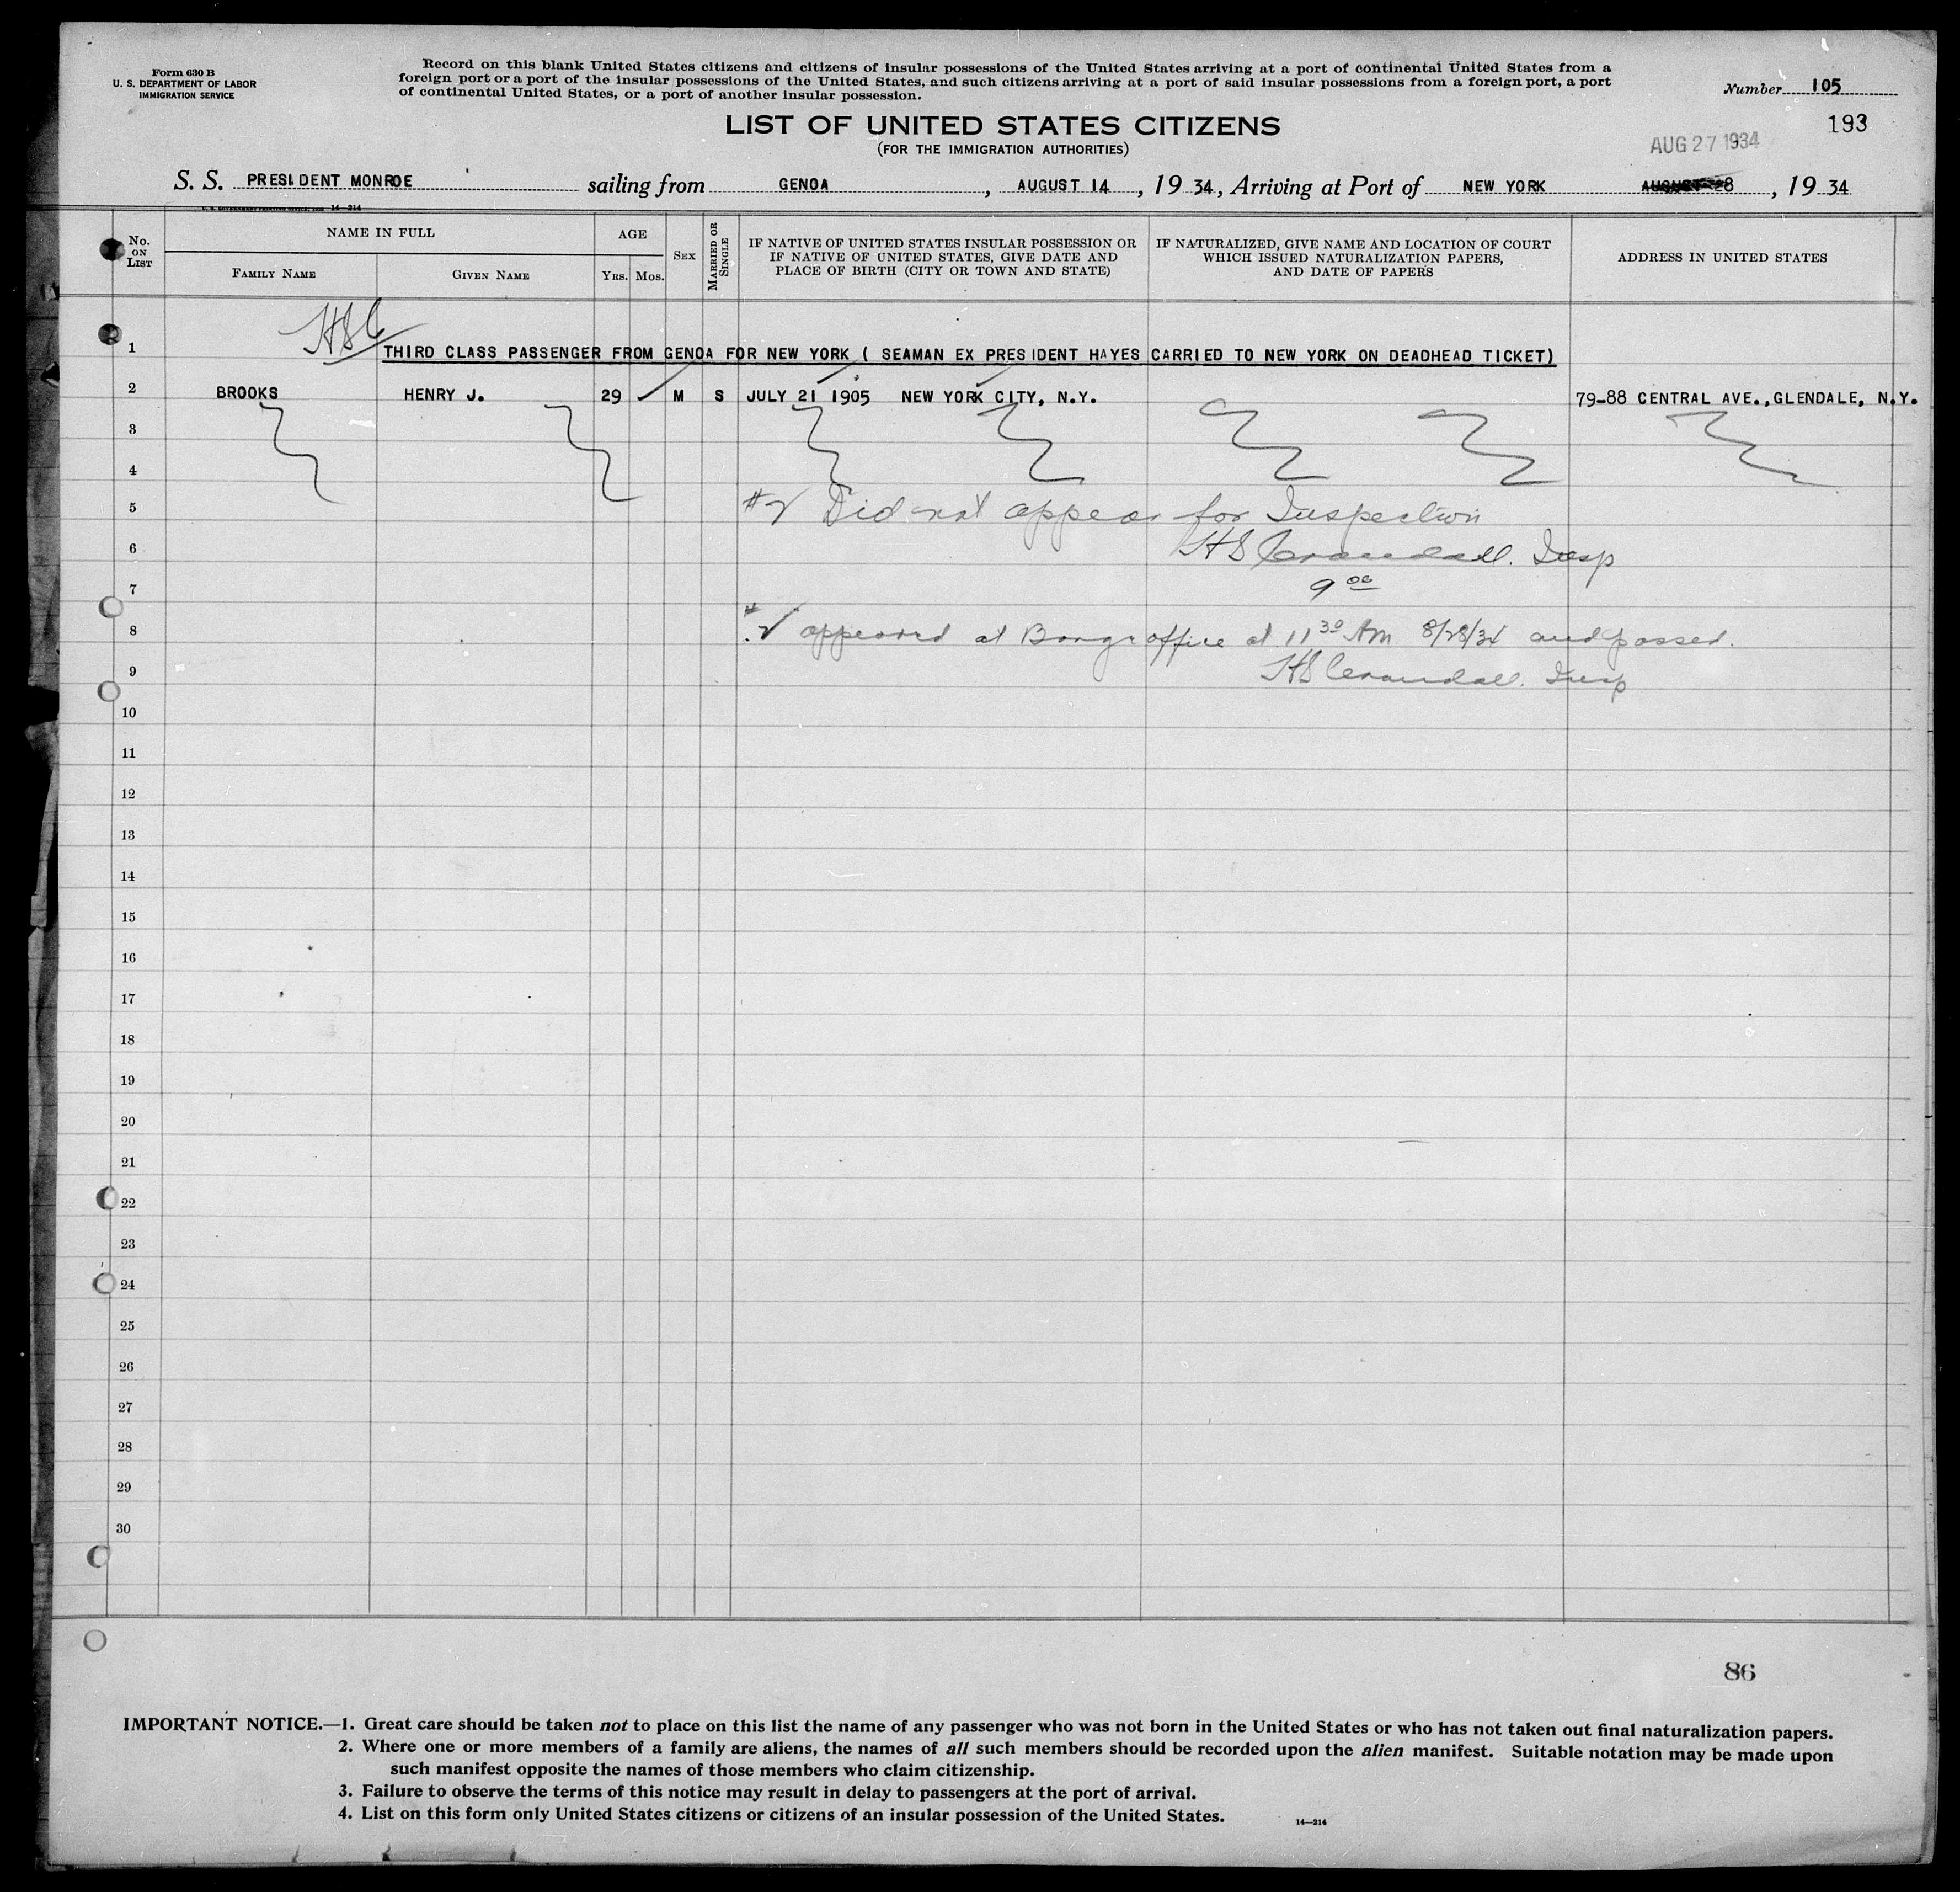 Form 630 B
U. S. DEPARTMENT OF LABOR
IMMIGRATION SERVICE
Record on this blank United States citizens and citizens of insular possessions of the United States arriving at a port of continental United States from a
foreign port or a port of the insular possessions of the United States, and such citizens arriving at a port of said insular possessions from a foreign port, a port
of continental United States, or a port of another insular possession.
Number 105
LIST OF UNITED STATES CITIZENS
193
(FOR THE IMMIGRATION AUTHORITIES)
AUG 27 1934
S. S. PRESIDENT MONROE sailing from GENOA, AUGUST 14, 1934, Arriving at Port of NEW YORK AUGUST 28, 1934
14-214
No. ON LIST
NAME IN FULL
FAMILY NAME
GIVEN NAME
AGE
YRS. MOS.
SEX
MARRIED OR SINGLE
IF NATIVE OF UNITED STATES INSULAR POSSESSION OR
IF NATIVE OF UNITED STATES, GIVE DATE AND
PLACE OF BIRTH (CITY OR TOWN AND STATE)
IF NATURALIZED, GIVE NAME AND LOCATION OF COURT
WHICH ISSUED NATURALIZATION PAPERS,
AND DATE OF PAPERS
ADDRESS IN UNITED STATES
HSC
1 THIRD CLASS PASSENGER FROM GENOA FOR NEW YORK ( SEAMAN EX PRESIDENT HAYES CARRIED TO NEW YORK ON DEADHEAD TICKET)
2 BROOKS HENRY J. 29 M S JULY 21 1905 NEW YORK CITY, N.Y. 79-88 CENTRAL AVE., GLENDALE, N.Y.
3
4
5 #2 Did not appear for Inspection
6 HS Crandall. Insp
7 9 00
8 #2 appeared at Barge office at 11 30 AM 8/28/34 and passed.
9 HS Crandall. Insp
10
11
12
13
14
15
16
17
18
19
20
21
22
23
24
25
26
27
28
29
30
86
IMPORTANT NOTICE.—1. Great care should be taken not to place on this list the name of any passenger who was not born in the United States or who has not taken out final naturalization papers.
2. Where one or more members of a family are aliens, the names of all such members should be recorded upon the alien manifest. Suitable notation may be made upon
such manifest opposite the names of those members who claim citizenship.
3. Failure to observe the terms of this notice may result in delay to passengers at the port of arrival.
4. List on this form only United States citizens or citizens of an insular possession of the United States.
14—214